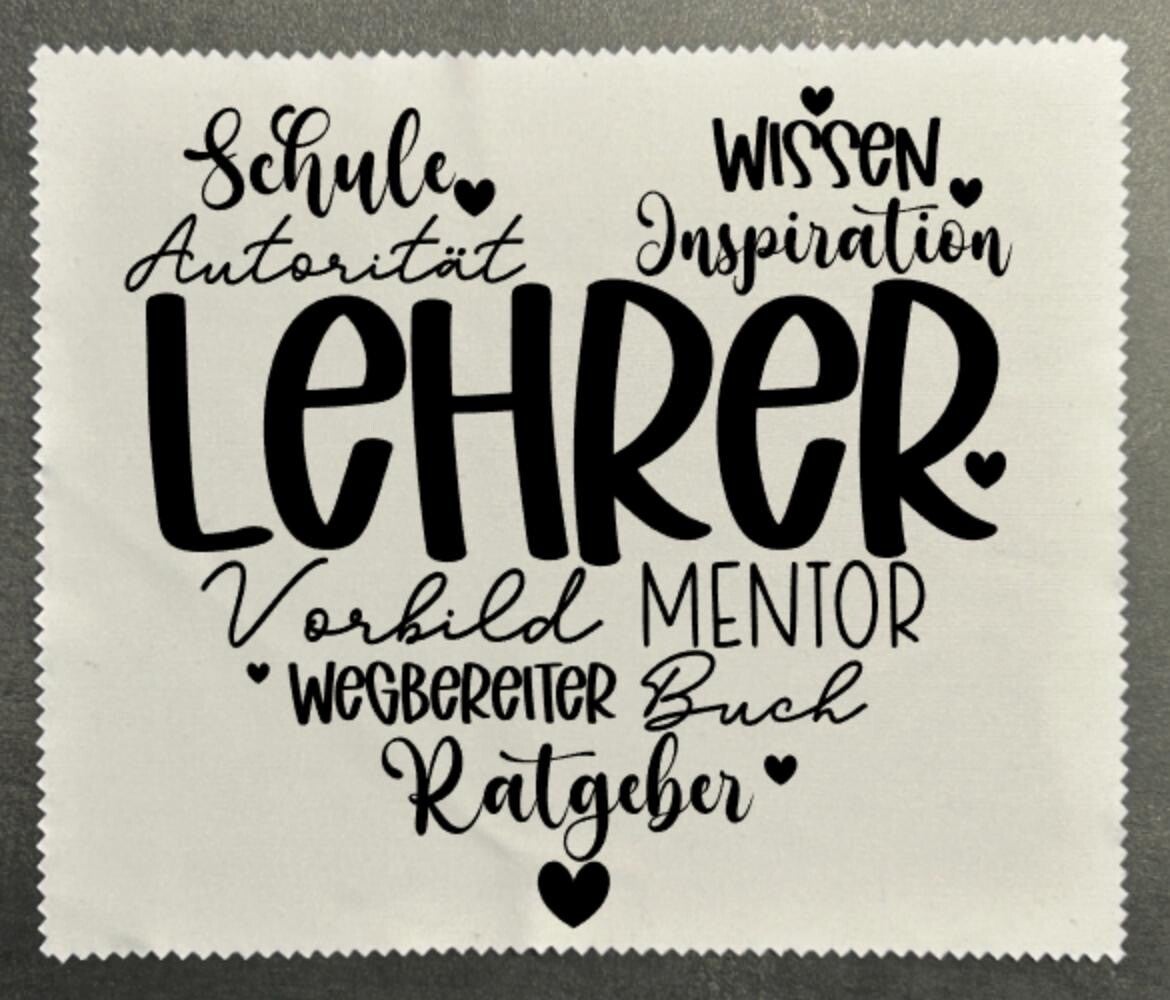 Schule
Wissen
Autorität
Inspiration
LeHReR
Vorbild MENTOR
WeGBeReITeR Buch
Ratgeber